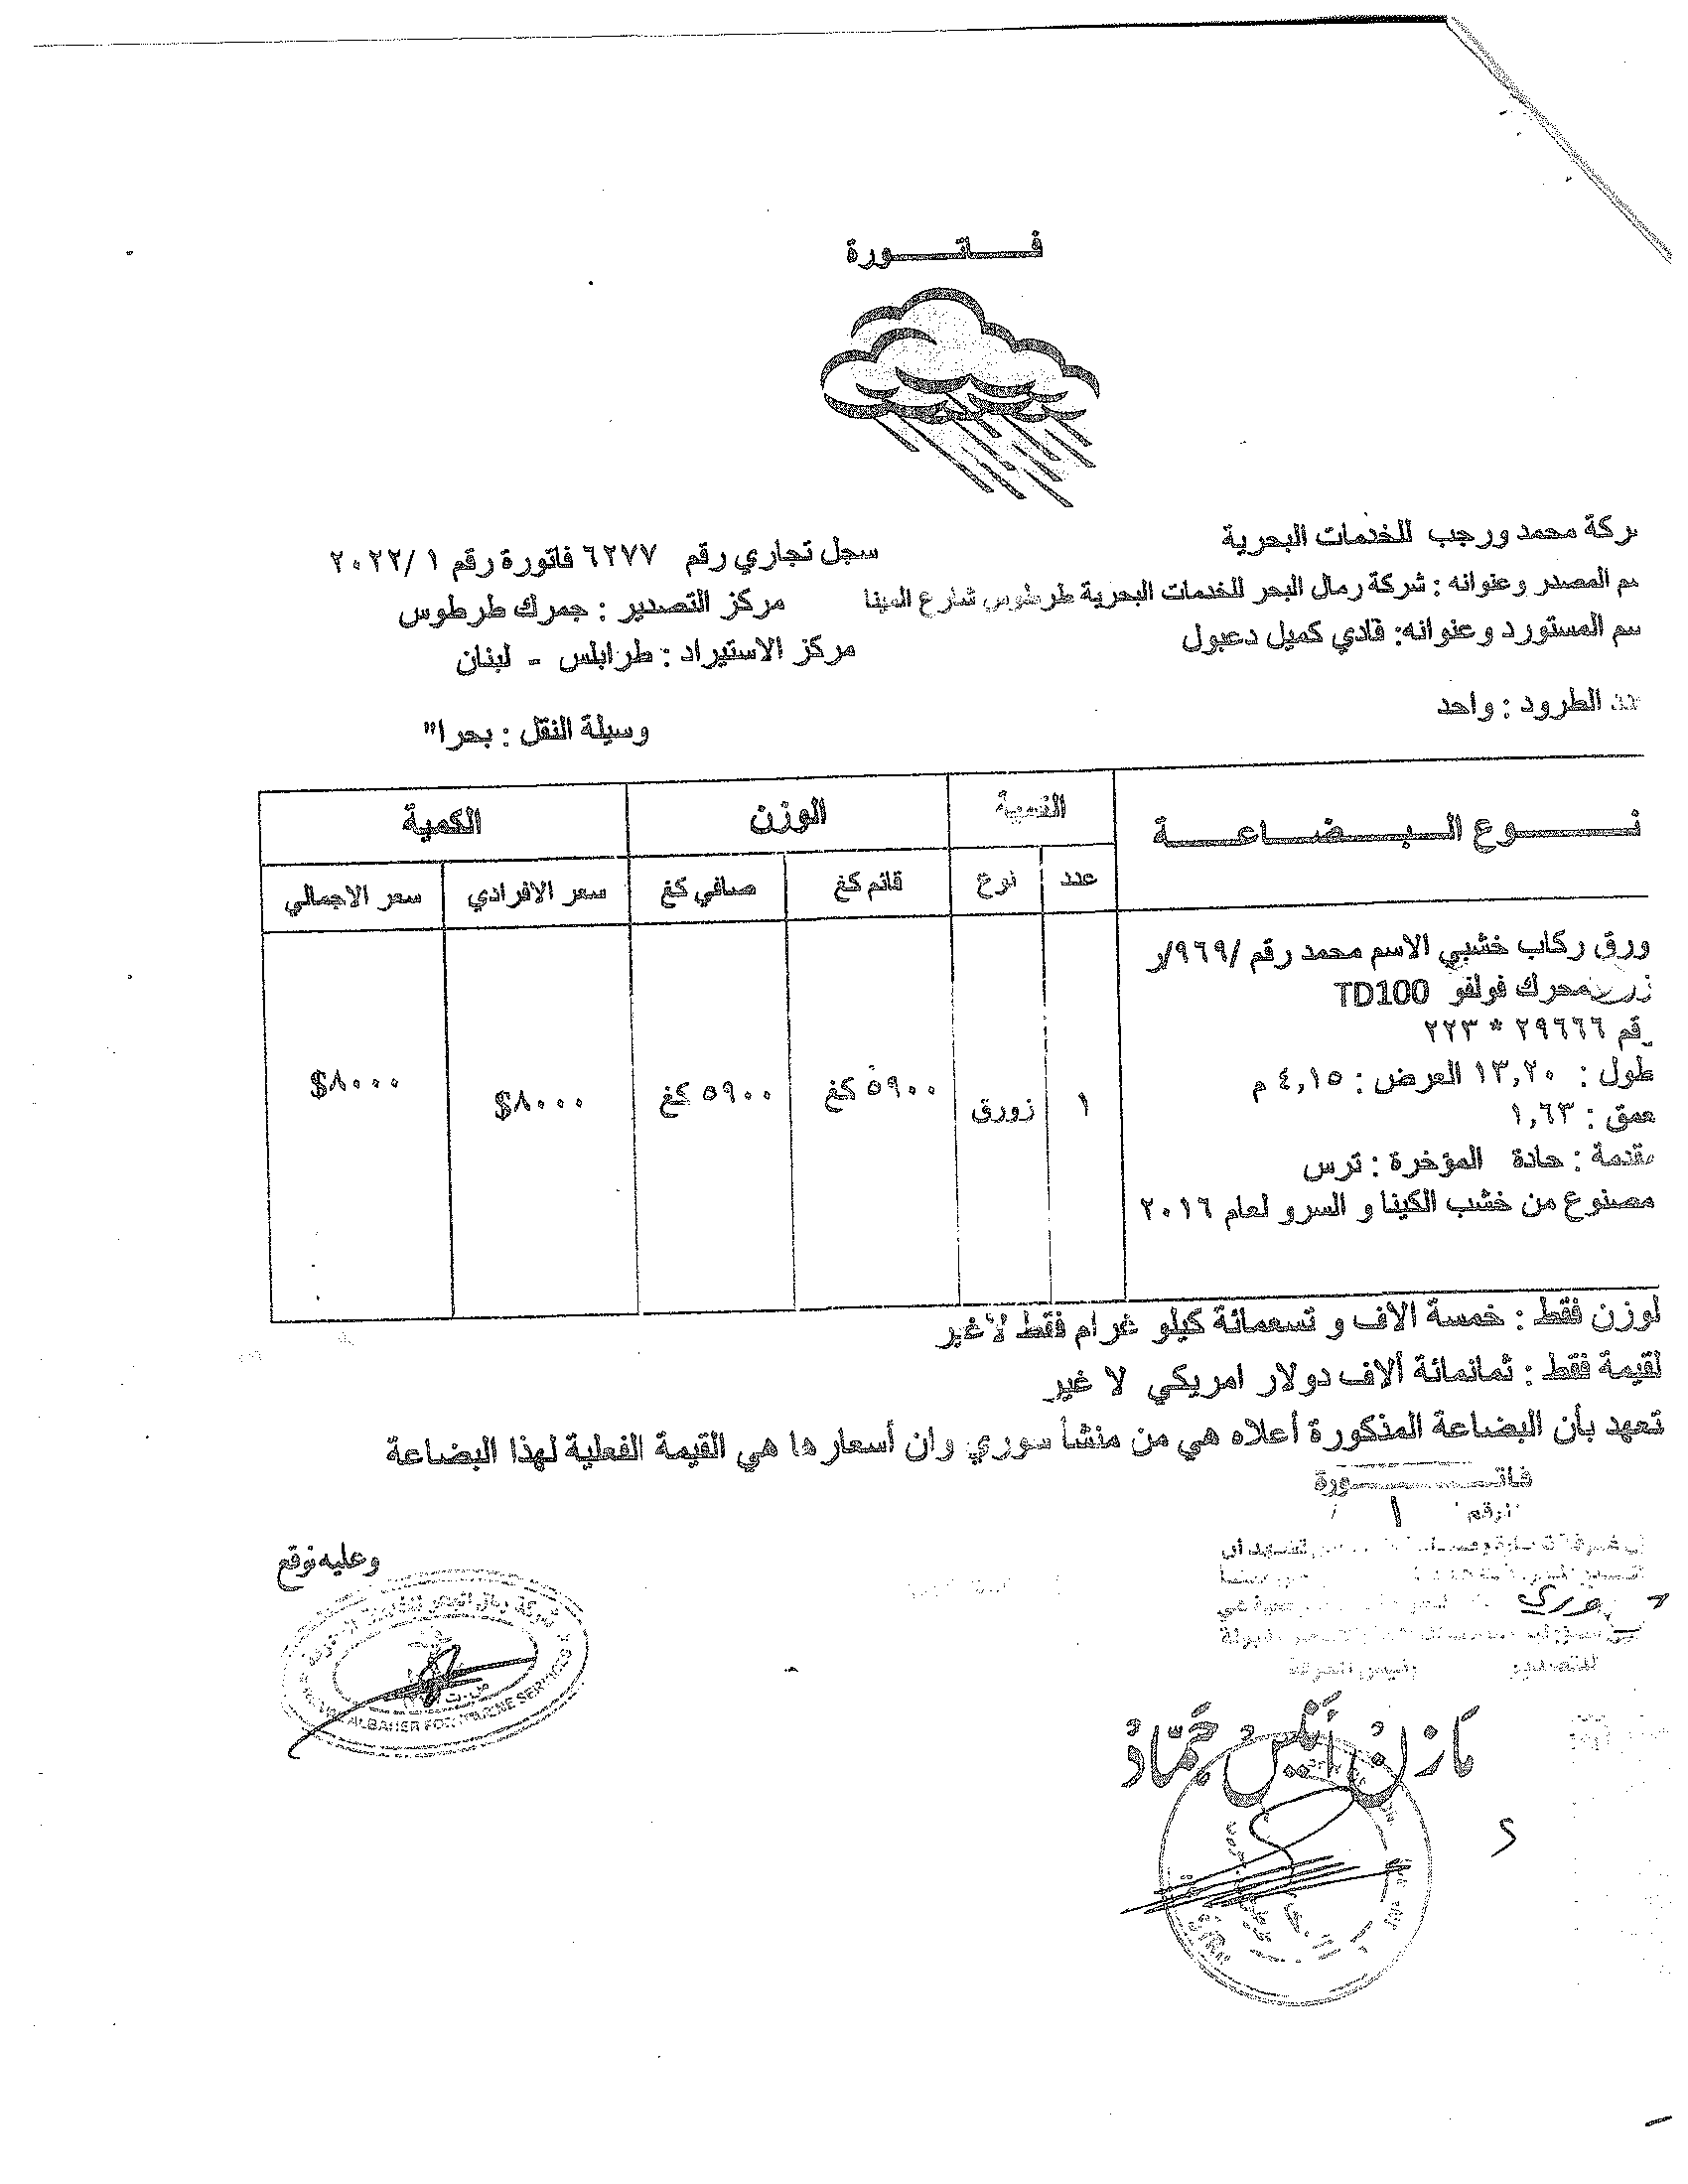 فـــاتـــورة
ركة محمد ورجب للخدمات البحرية
سجل تجاري رقم ٦٢٧٧ فاتورة رقم ١ /٢٠٢٢
سم المصدر وعنوانه : شركة رمال البحر للخدمات البحرية طرطوس شارع المينا
مركز التصدير : جمرك طرطوس
سم المستورد وعنوانه: فادي كميل دعبول
مركز الاستيراد : طرابلس - لبنان
دد الطرود : واحد
وسيلة النقل : بحرا"
نـــوع الـبـضـاعـة
الوزن
الكمية
عدد
نوع
قائم كغ
صافي كغ
سعر الافرادي
سعر الاجمالي
ورق ركاب خشبي الاسم محمد رقم /٩٦٩/ر
محرك فولفو TD100
رقم ٢٩٦٦٦ * ٢٢٣
طول : ١٣,٢٠ العرض : ٤,١٥ م
عمق : ١,٦٣
مقدمة : حادة المؤخرة : ترس
مصنوع من خشب الكينا و السرو لعام ٢٠١٦
١
زورق
٥٩٠٠ كغ
٥٩٠٠ كغ
$٨٠٠٠
$٨٠٠٠
لوزن فقط : خمسة الاف و تسعمائة كيلو غرام فقط لاغير
لقيمة فقط : ثمانمائة ألاف دولار امريكي لا غير
تعهد بأن البضاعة المذكورة أعلاه هي من منشأ سوري وان أسعارها هي القيمة الفعلية لهذا البضاعة
فاتـــورة
الرقم ١
وعليه نوقع
شركة رمال البحر للخدمات البحرية
ALBAHER FOR MARINE SERVICES
مازن أنيس حماد